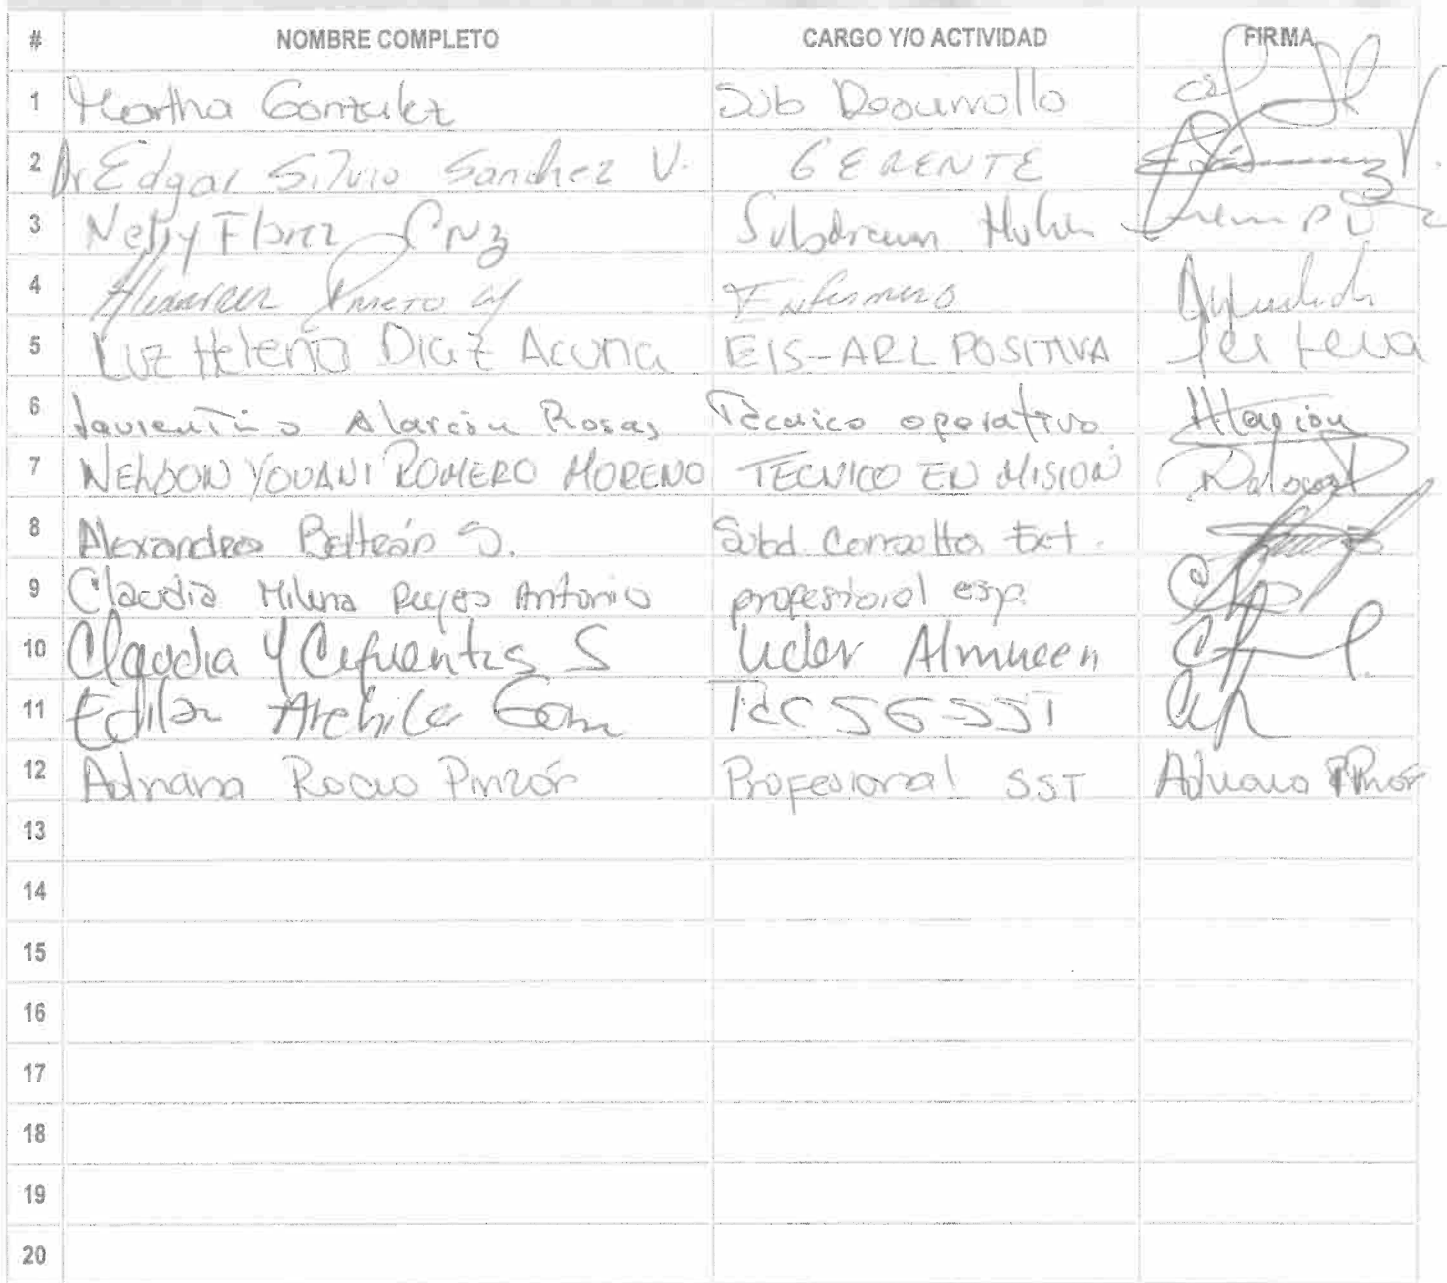 # NOMBRE COMPLETO CARGO Y/O ACTIVIDAD FIRMA
1 Martha Gonzalez Sub Desarrollo
2 Dr Edgar Silvio Sanchez V. GERENTE
3 Nelsy Florez Cruz
4 Prieto Enfermero
5 Luz Helena Diaz Acuna EIS-ARL POSITIVA
6 Laurentino Alarcón Rosas Técnico operativo Alarcón
7 NELSON YOVANI ROMERO MORENO TECNICO EN MISION
8 Alexandra Beltrán S. Subd. Consulta Ext.
9 Claudia Milena Reyes Antonio profesional esp.
10 Claudia Y Cifuentes S Lider Almacen
11 Edilsa Archila Tec SG-SST
12 Adriana Rocio Pinzón Profesional SST Adriana RPinzón
13
14
15
16
17
18
19
20